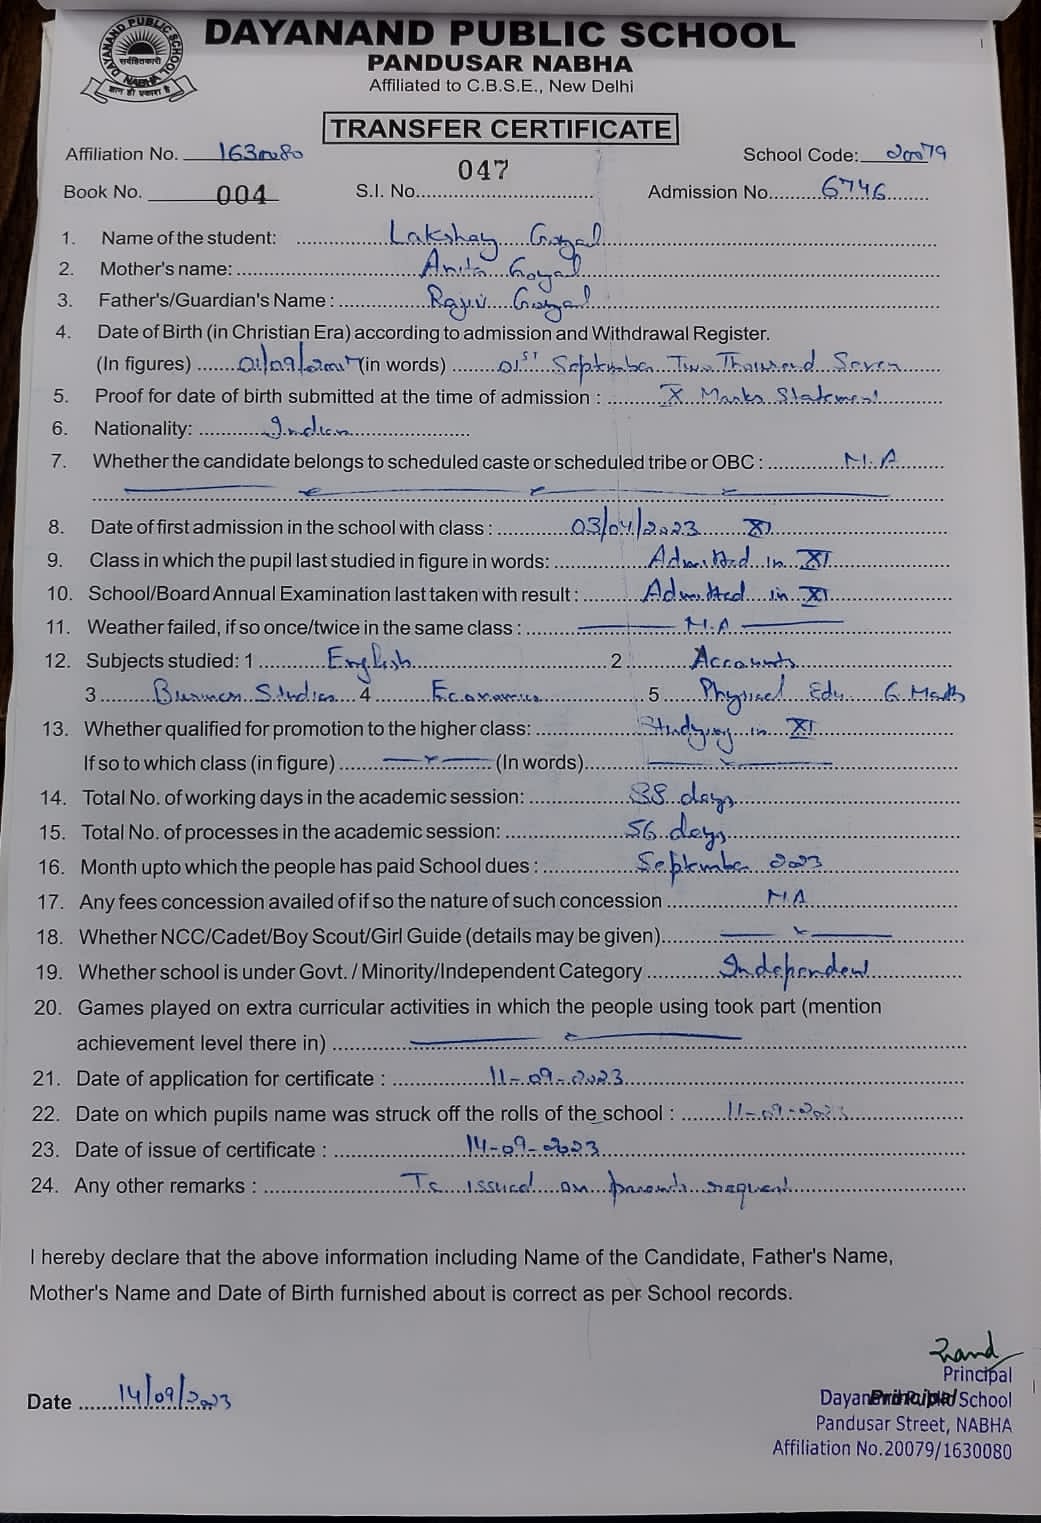 DAYANAND PUBLIC SCHOOL
PANDUSAR NABHA
Affiliated to C.B.S.E., New Delhi
DAYANAND PUBLIC SCHOOL
NABHA
TRANSFER CERTIFICATE
Affiliation No. 1630080
School Code: 20079
Book No. 004 S.I. No. 047 Admission No. 6746
1. Name of the student: Lakshay Goyal
2. Mother's name: Anita Goyal
3. Father's/Guardian's Name : Rajiv Goyal
4. Date of Birth (in Christian Era) according to admission and Withdrawal Register.
(In figures) 01/09/2007 (in words) 01ST September Two Thousand Seven
5. Proof for date of birth submitted at the time of admission : X Marks Statement
6. Nationality: Indian
7. Whether the candidate belongs to scheduled caste or scheduled tribe or OBC : N.A
8. Date of first admission in the school with class : 03/04/2023 XI
9. Class in which the pupil last studied in figure in words: Admitted in XI
10. School/Board Annual Examination last taken with result : Admitted in XI
11. Weather failed, if so once/twice in the same class : N.A
12. Subjects studied: 1 English 2 Accounts
3 Business Studies 4 Economics 5 Physical Edu 6. Math
13. Whether qualified for promotion to the higher class: Studying in XI
If so to which class (in figure) (In words)
14. Total No. of working days in the academic session: 88 days
15. Total No. of processes in the academic session: 56 days
16. Month upto which the people has paid School dues : September 2023
17. Any fees concession availed of if so the nature of such concession N.A
18. Whether NCC/Cadet/Boy Scout/Girl Guide (details may be given)
19. Whether school is under Govt. / Minority/Independent Category Independent
20. Games played on extra curricular activities in which the people using took part (mention
achievement level there in)
21. Date of application for certificate : 11-09-2023
22. Date on which pupils name was struck off the rolls of the school : 11-09-2023
23. Date of issue of certificate : 14-09-2023
24. Any other remarks : Tc issued on parents request
I hereby declare that the above information including Name of the Candidate, Father's Name,
Mother's Name and Date of Birth furnished about is correct as per School records.
Date 14/09/2023
Principal
Principal School
Pandusar Street, NABHA
Affiliation No.20079/1630080